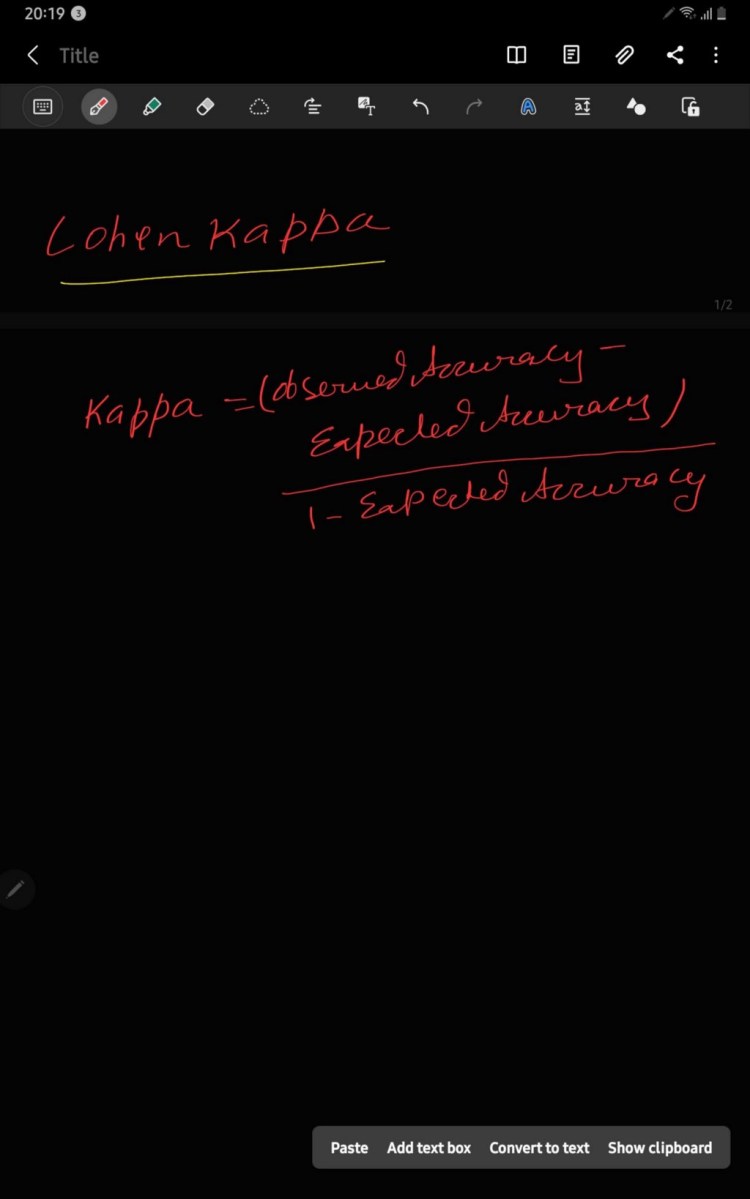 20:19 3
Title
Cohen Kappa
1/2
Kappa = (observed Accuracy -
Expected Accuracy)
1 - Expected Accuracy
Paste Add text box Convert to text Show clipboard